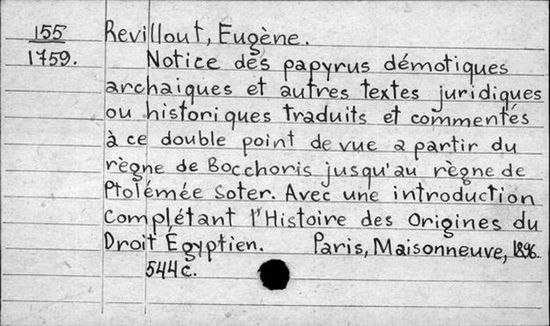 155 Revillout, Eugène.
1759. Notice des papyrus démotiques
archaiques et autres textes juridiques
ou historiques traduits et commentés
à ce double point de vue a partir du
règne de Bocchoris jusqu'au règne de
Ptolémée Soter. Avec une introduction
complétant l'Histoire des Origines du
Droit Égyptien. Paris, Maisonneuve, 1896.
544 c.